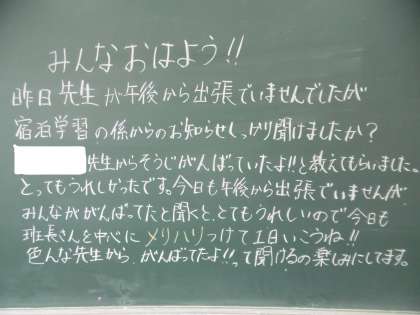 みんなおはよう!!
昨日先生が午後から出張でいませんでしたが
宿泊学習の係からのお知らせしっかり聞けましたか?
先生からそうじがんばっていたよ!!と教えてもらいました。
とってもうれしかったです。今日も午後から出張でいませんが
みんながかんばってたと聞くと、とてもうれしいので今日も
班長さんを中心にメリハリつけて1日いこうね!!
色んな先生から、がんばってたよ!!って聞けるの楽しみにしてます。